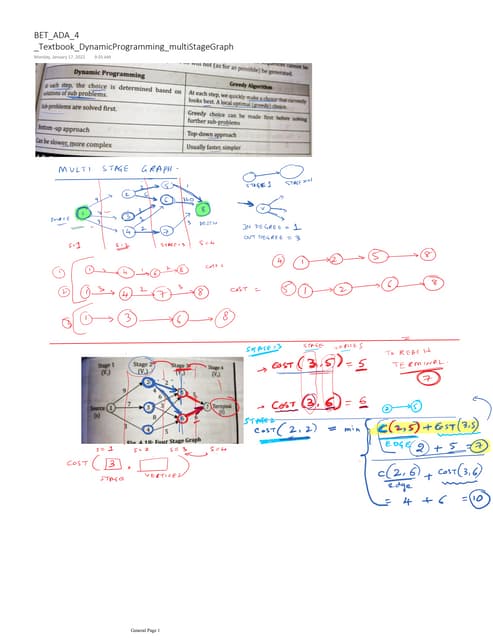 BET_ADA_4
_Textbook_DynamicProgramming_multiStageGraph
Monday, January 17, 2022 9:33 AM
not (as for as possible) be generated.
Dynamic Programming
Greedy Algorithm
At each step, the choice is determined based on
solutions of sub problems.
At each step, we quickly make a choice that currently
looks best. A local optimal (greedy) choice.
Sub-problems are solved first.
Greedy choice can be made first before solving
further sub-problems
Bottom-up approach
Top-down approach
Can be slower, more complex
Usually faster, simpler
MULTI STAGE GRAPH-
STAGE 1
SOURCE
IN DEGREE = 1
OUT DEGREE = 3
S=1
STAGE=3
S=4
1 4 6 8 COST=
1 3 4 2 7 3 8 COST =
3 1 3 6 8
4 1 2 5 8
5 1 2 6 8
STAGE=3
STAGE
TO REACH
TERMINAL
7
→ COST (3,5) = 5
→ COST (3,6) = 6
STAGE 2
COST (2,2) = min
C(2,5) + COST(3,5)
EDGE 2 + 5 = 7
C(2,6) + COST(3,6)
edge
= 4 + 6 = 10
Stage 1
Stage 2
Stage 3
Stage 4
(V₁)
(V₂)
(V₃)
(V₄)
Source
(s)
Terminal
Fig. 4.18: Four Stage Graph
S=1 S=2 S=3 S=4
COST ( 3 , )
STAGE VERTICES
General Page 1